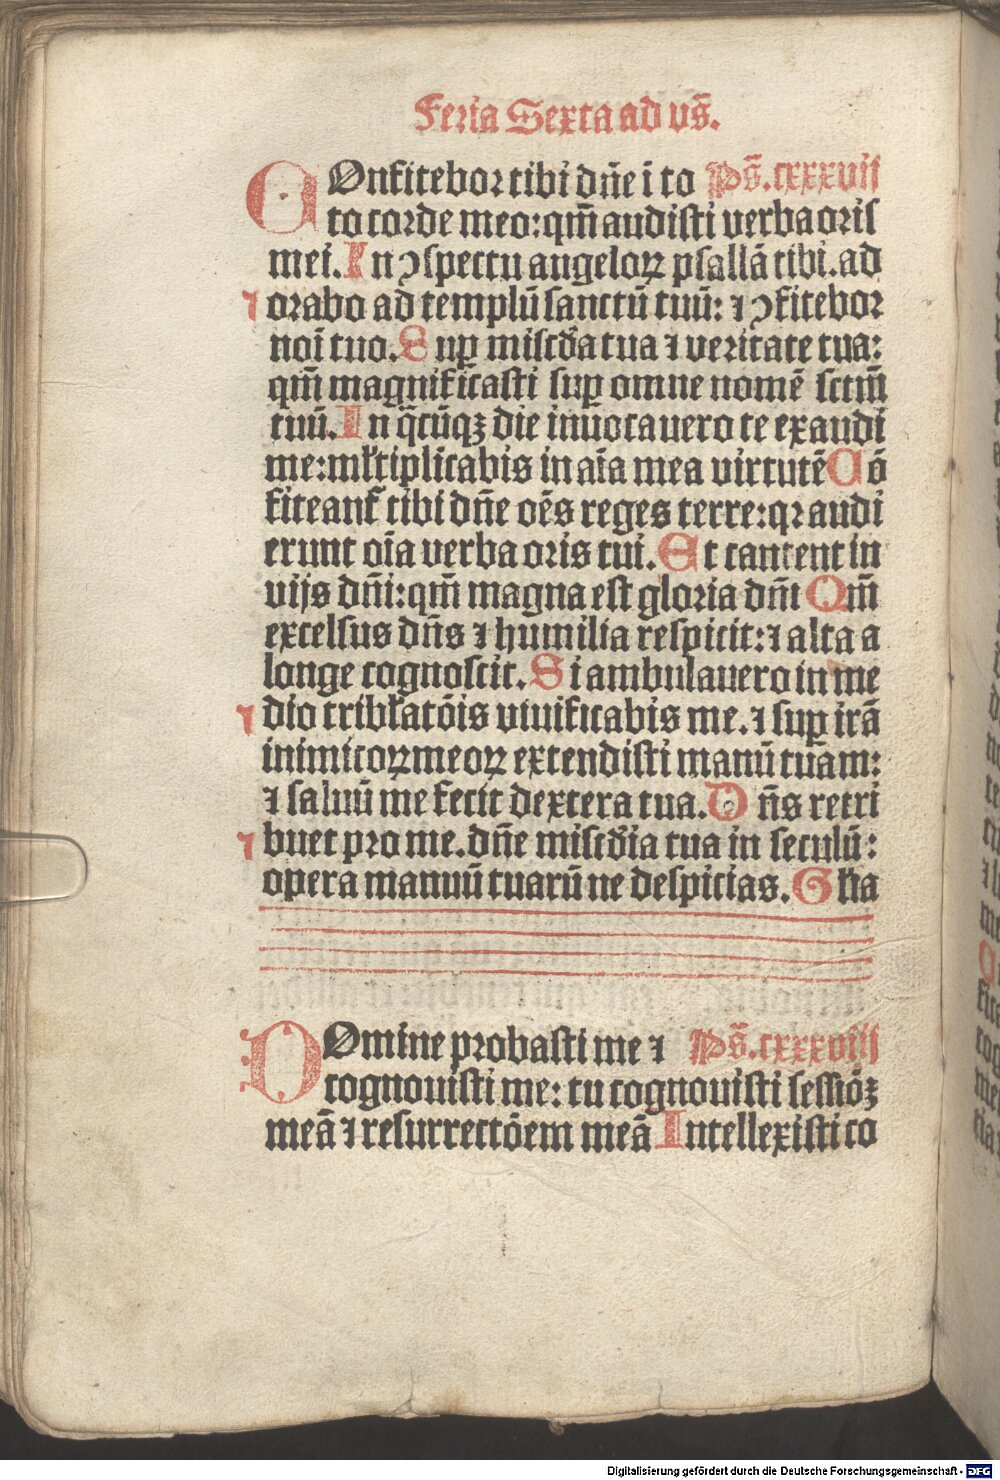 Feria Sexta ad vs̄.
COnfitebor tibi dn̄e ī to Ps̄.cxxxvii
to corde meo:qm̄ audisti verba oris
mei.In ↄspectu angeloꝝ psallā tibi.ad
orabo ad templū sanctū tuū: ⁊ ↄfitebor
noī tuo.Suꝑ misc̄dꝛa tua ⁊ veritate tua:
qm̄ magnificasti suꝑ omne nomē sctm̄
tuū.In q̄cūqꝫ die inuocauero te exaudi
me:ml̓tiplicabis in aīa mea virtutē Cō
fiteant᷑ tibi dn̄e oēs reges terre:qꝛ audi
erunt oīa verba oris tui.Et cantent in
vijs dn̄i:qm̄ magna est gloria dn̄i Qm̄
excelsus dn̄s ⁊ humilia respicit:⁊ alta a
longe cognoscit.Si ambulauero in me
dio tribl̓atōis viuificabis me.⁊ suꝑ irā
inimicoꝝ meoꝝ extendisti manū tuam:
⁊ saluū me fecit dextera tua.Dn̄s retri
buet pro me.dn̄e misc̄dia tua in seculū:
opera manuū tuarū ne despicias.Gl̓ia
DOmine probasti me ⁊ Ps̄.cxxxviij
cognouisti me: tu cognouisti sessiōꝫ
meā ⁊ resurrectōem meā Intellexisti co
Digitalisierung gefördert durch die Deutsche Forschungsgemeinschaft - DFG